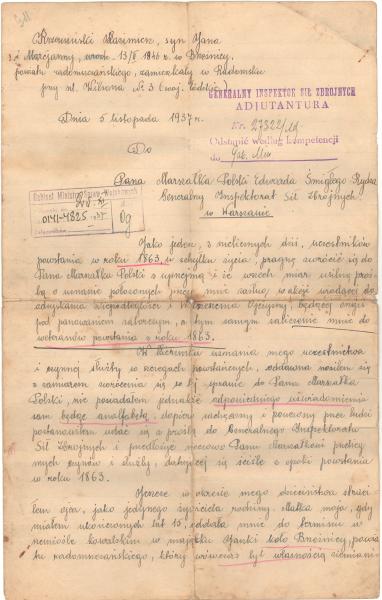 Krzewiński Kazimierz, syn Jana
i Marcjanny, urodz. 13/II 1846 r. w Brzeźnicy,
powiatu radomszczańskiego, zamieszkały w Radomsku
przy ul. Wilsona № 3 (woj. łódzkie)
GENERALNY INSPEKTOR SIŁ ZBROJNYCH
ADJUTANTURA
Nr. 27322/
Odstąpić według kompetencji
do Gab. Min
Dnia 5 listopada 1937 r.
Do
Pana Marszałka Polski Edwarda Śmigłego Rydza
Generalny Inspektorat Sił Zbrojnych
w Warszawie
Gabinet Ministra Spraw Wojskowych
0141-4825
Og
Jako jeden, z nielicznych dziś, uczestników
powstania w roku 1863, w schyłku życia, pragnę zwrócić się do
Pana Marszałka Polski z uprzejmą i ze wszech miar usilną proś-
bą o uznanie położonych przez mnie zasług w akcji wiodącej do
odzyskania Niepodległości i Ojczyzny, będącej ongiś
pod panowaniem zaborczem, a tym samym zaliczenie mnie do
weteranów powstania z roku 1863.
W kierunku uznania mego uczestnictwa
i czynnej służby w szeregach powstańczych, oddawna nosiłem się
z zamiarem zwrócenia się w tej sprawie do Pana Marszałka
Polski, nie posiadałem jednakże odpowiedniego uświadomienia
sam będąc analfabetą, dopiero zachęcony i pouczony przez ludzi
postanowiłem udać się z prośbą do Generalnego Inspektoratu
Sił Zbrojnych i przedłożyć Panu Marszałkowi przebieg
mych czynów i służby, datującej się ściśle z epoki powstania
w roku 1863.
Jeszcze w okresie mego dzieciństwa straci-
łem ojca, jako jedynego żywiciela rodziny. Matka moja, gdy
miałem ukończonych lat 15, oddała mnie do terminu w
rzemiośle kowalskim w majątku Janki koło Brzeźnicy, powia-
tu radomszczańskiego, który wówczas był własnością ziemiani-